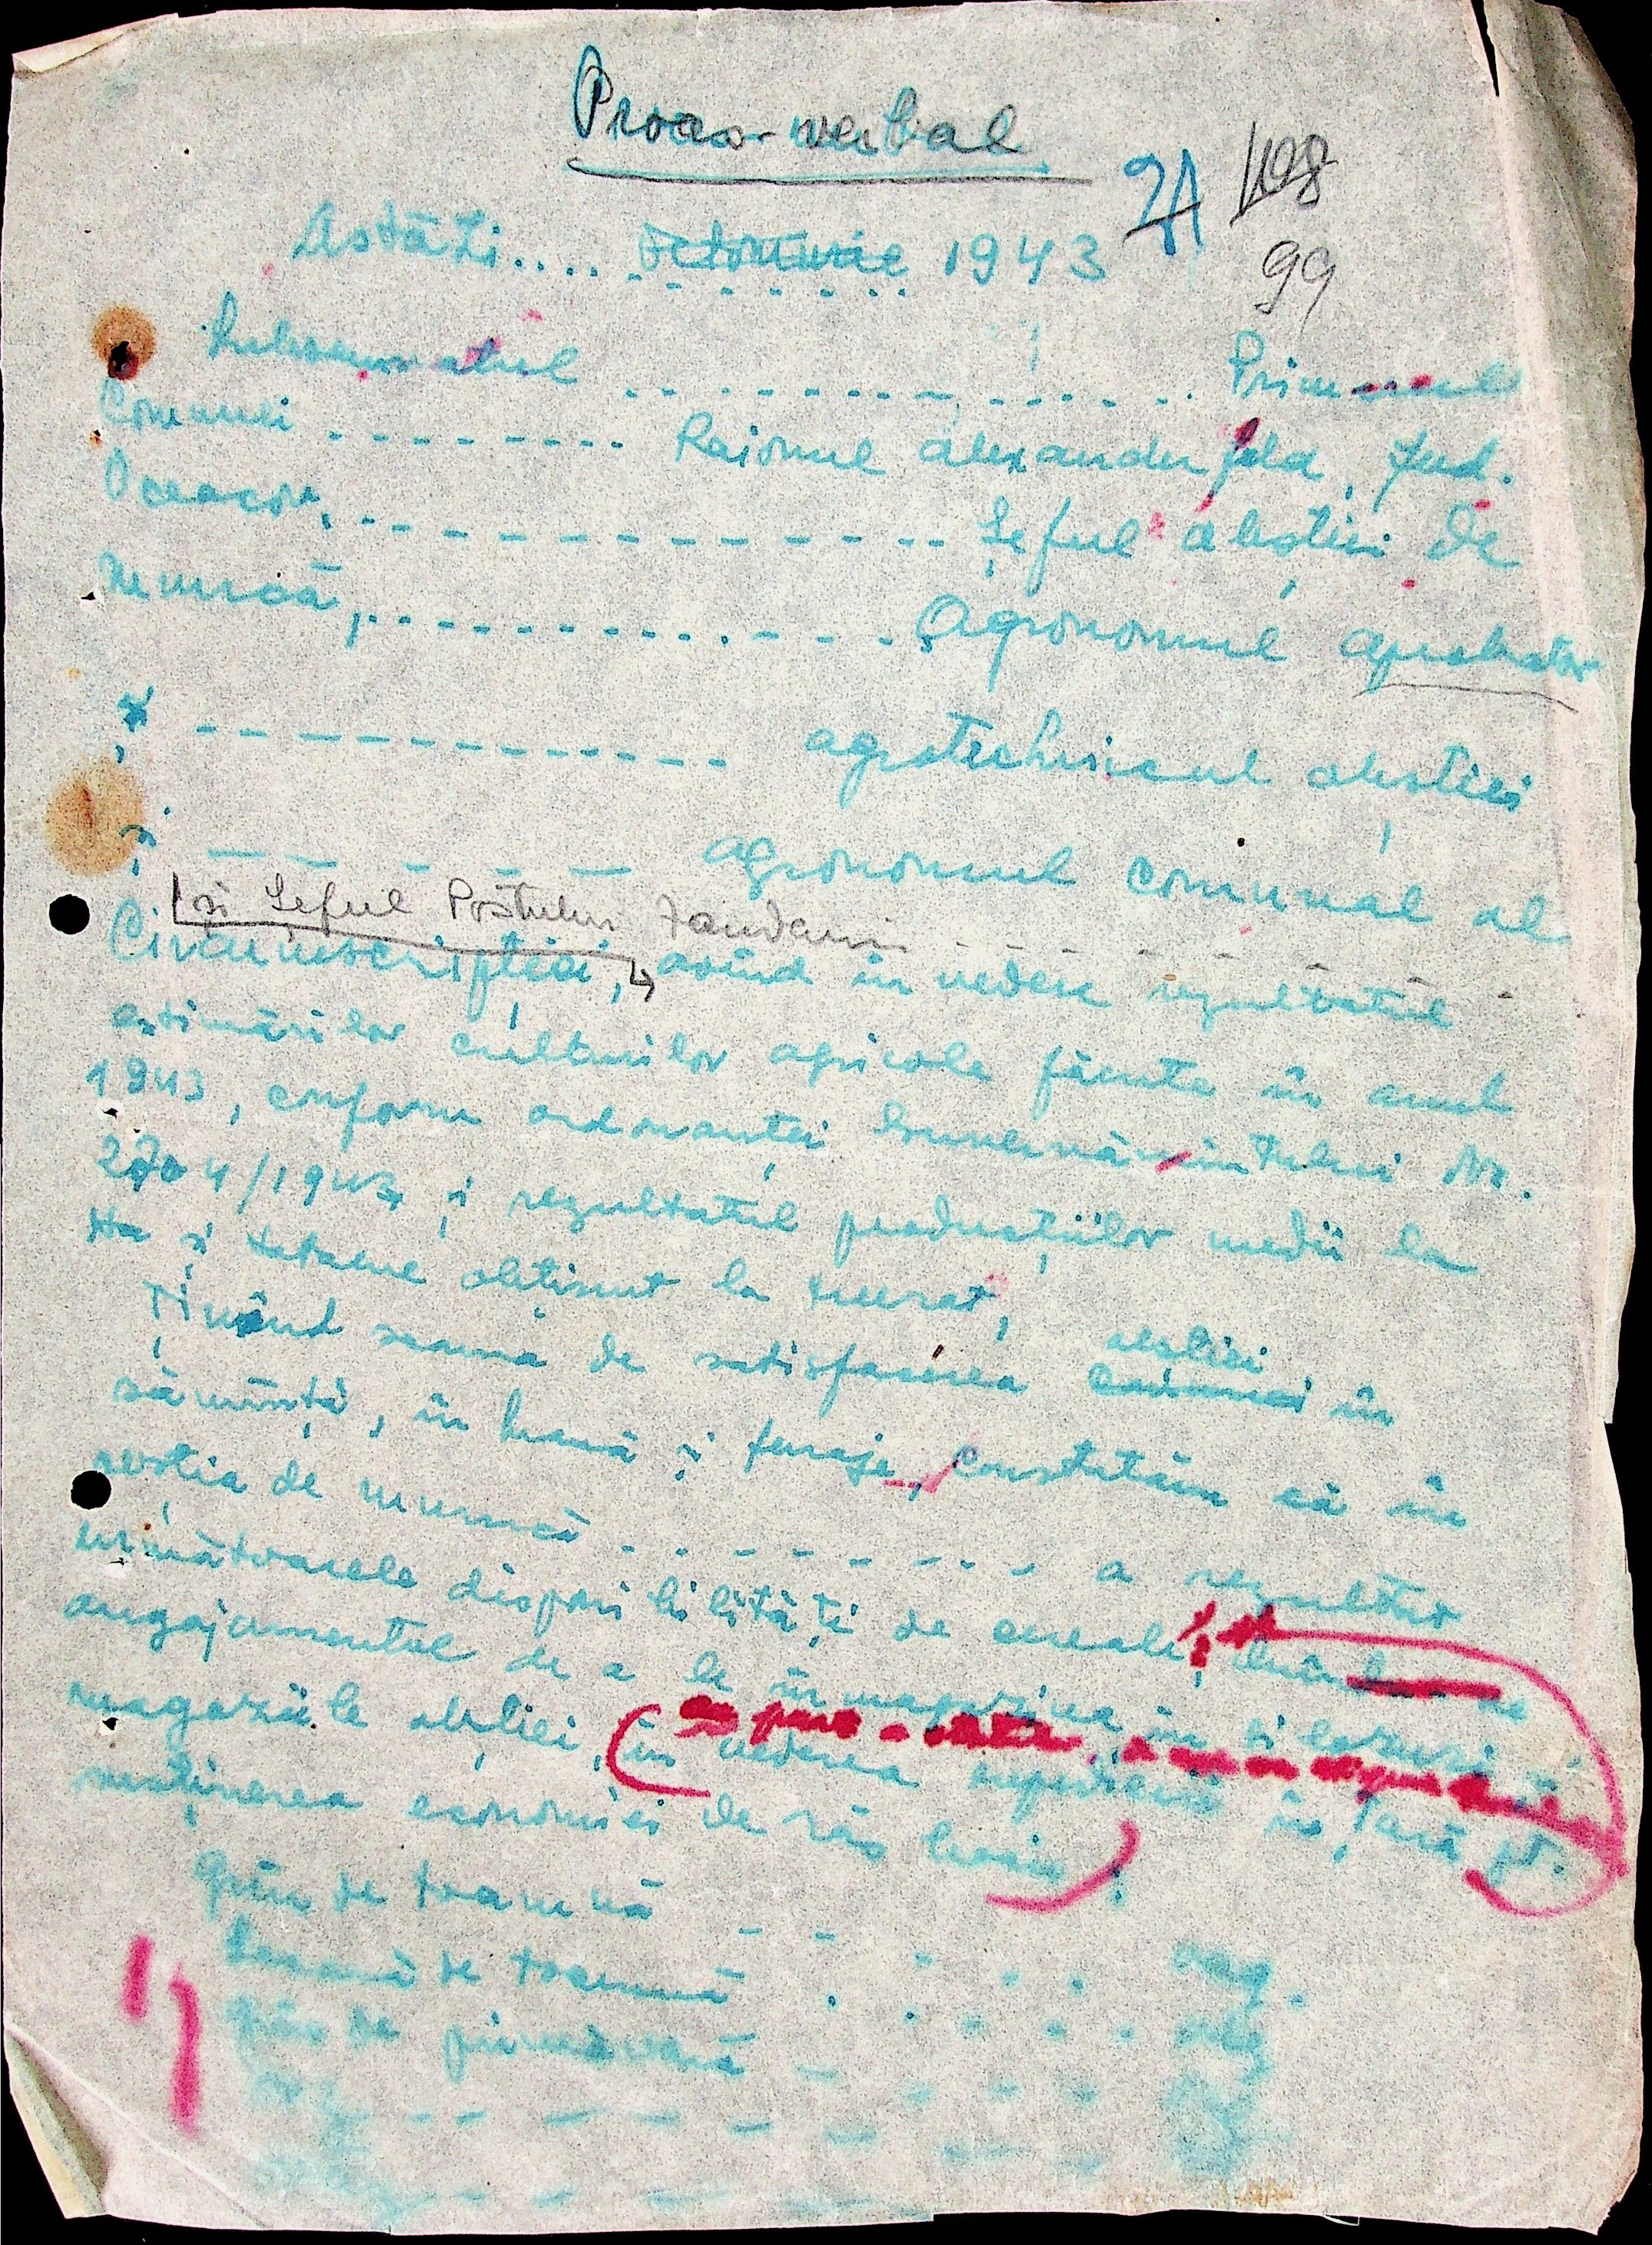 Proces-verbal
21 198
99
Astăzi.... Octomvrie 1943
Subsemnatul .................... Primarul
Comunei ......... Raionul Alexanderfeld, Jud.
Oceacov, ............... Șeful obștiei de
muncă, ............... Agronomul
............... agrotehnicul obștiei
și ............ agronomul comunal al
și Șeful Postului Jandarmi ........
Circumscripției, având în vedere rezultatul
estimărilor culturilor agricole făcute în anul
1943, conform ordonanței Guvernământului Nr.
/1943 și rezultatul producțiilor medii la
Ha și totalul obținut la treerat,
obștiei
Ținând seama de satisfacerea Comunei în
sămânță, în hrană și furaje, constatăm că în
obștia de muncă ......... a rezultat
următoarele disponibilități de cereale,
angajamentul de a le înmagazina în silozuri
magaziile obștiei, în vederea expedierii în Țară pt.
susținerea economiei de răsboiu:
Grâu de toamnă ...... vag.
Secară de toamnă ...... vag
Grâu de primăvară ......